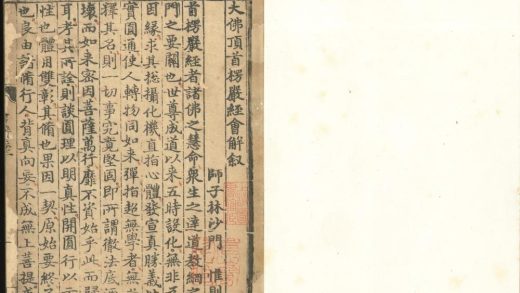 大佛頂首楞嚴經會解叙
師子林沙門 惟則
首楞嚴經者諸佛之慧命衆生之達道教網之
門之要關也世尊成道以來五時設化無非
因緣求其揔攝化機直指心體發宣真勝義
實圓通使人轉物同如來彈指超無學者無
釋其名則一切事究竟堅固即所謂徹法底
壞而如來密因菩薩萬行靡不資始乎此而
耳考其所詮則談圓理以明真性開圓行以
性也體用雙彰其脩也果因一契原始要終
也良由諸脩行人背真向妄不成無上菩提